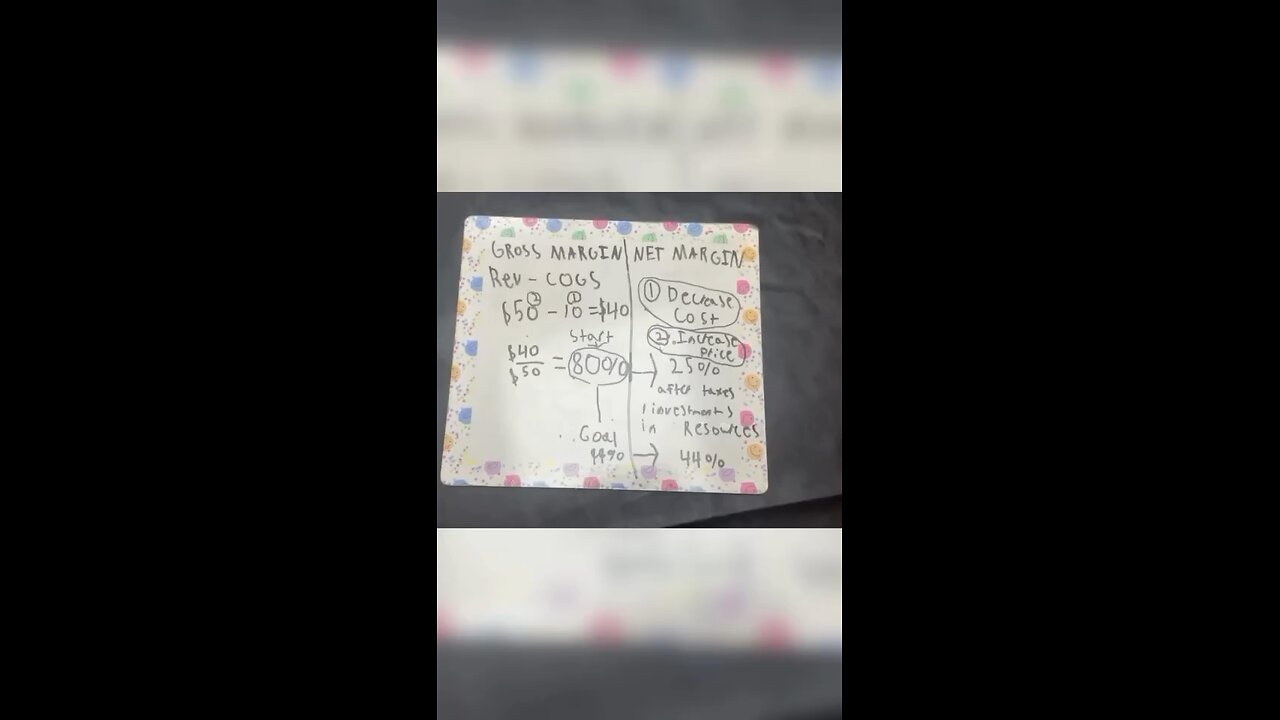 GROSS MARGIN
Rev - COGS
$50 ② - 10 ① = $40
Start
$40
$50
= 80%
Goal
NET MARGIN
① Decrease
Cost
② Increase
Price
→ 25%
after taxes
investments
in Resources
→ 44%